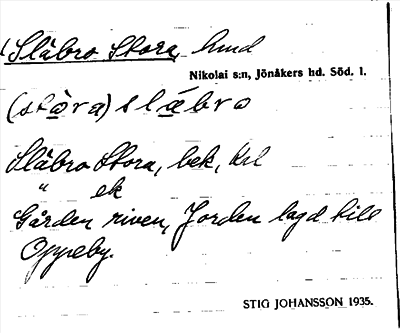 Släbro Stora, hmd
Nikolai s:n, Jönåkers hd. Söd. l.
(stòra) slábro
Släbro Stora, bek, krl
" ek
Gården riven, Jorden lagd till
Oppeby.
STIG JOHANSSON 1935.